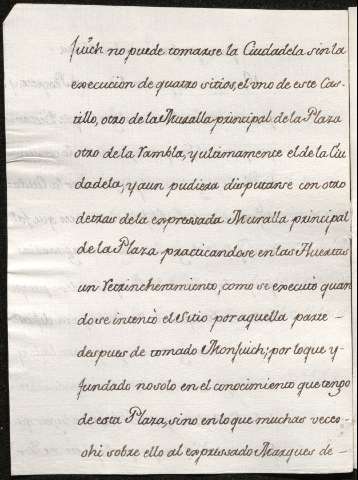 juich no puede tomarse la Ciudadela sin la
execuiion de quatro sitios, el vno de este Cas-
tillo, otro de la Muralla principal de la Plaza
otro de la Rambla, y ultimamente el de la Ciu
dadela, y aun pudiera disputarse con otro
detras de la expressada Muralla principal
de la Plaza practicandose en las Huertas
un Retrincheramiento, como se executo quan
do se intentó el Sitio por aquella parte-
despues de tomado Monjuich; por lo que y-
fundado no solo en el conocimiento que tengo
de esta Plaza, sino en lo que muchas veces-
ohi sobre ello al expressado Marques de-